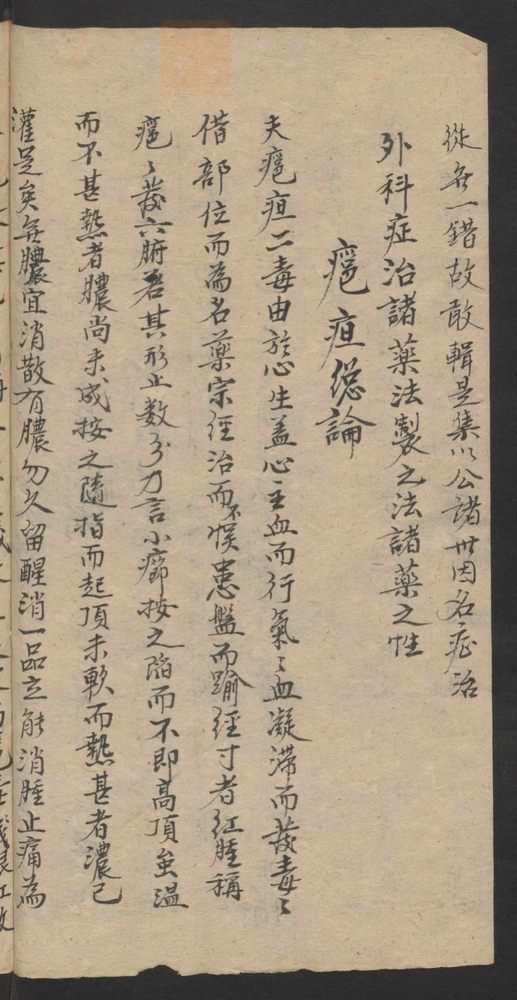 從無一錯故敢輯是集以公諸世因名症治
外科症治諸藥法製之法諸藥之性
瘪疽總論
夫瘪疽二毒由於心生盖心主血而行氣〻血凝滞而發毒〻
借部位而為名藥宗經治而不悮患盤而踰徑寸者紅腫稱
瘪〻發六腑若其形止数分乃言小癤按之陷而不即高頂虽温
而不甚熱者膿尚未成按之隨指而起頂未軟而熱甚者濃已
灌足矣無膿宜消散有膿勿久留醒消一品立能消腫止痛為